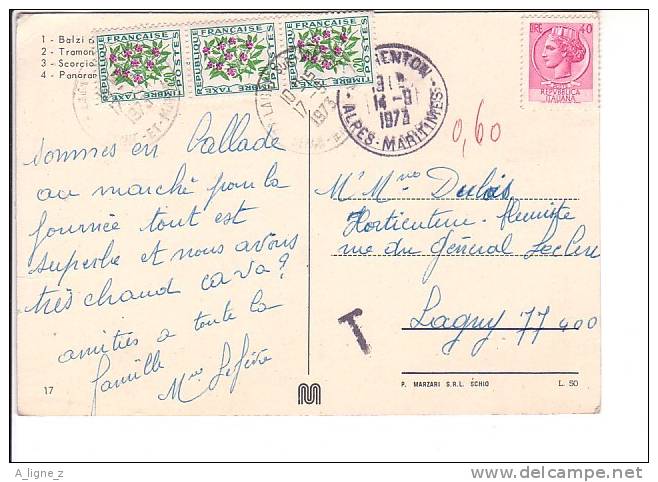 1 - Balzi
2 - Tramon
3 - Scorcio
4 - Panoram
REPUBLIQUE FRANCAISE
POSTES
TIMBRE TAXE
0,20
REPUBLIQUE FRANCAISE
POSTES
TIMBRE TAXE
REPUBLIQUE FRANCAISE
POSTES
TIMBRE TAXE
0,20
17
1973
MENTON
14-8
1973
ALPES-MARITIMES
LIRE 40
REPUBBLICA
ITALIANA
0,60
sommes en Ballade
au marché pour la
journée tout est
superbe et nous avons
très chaud ca va?
amitiés a toute la
famille
Mme Lefèvre
Mr Mme Dubois
Horticulteur - fleuriste
rue du Général Leclerc
Lagny 77400
T
17
M
P. MARZARI S.R.L. SCHIO
L. 50
A_ligne_z
delcampe.net